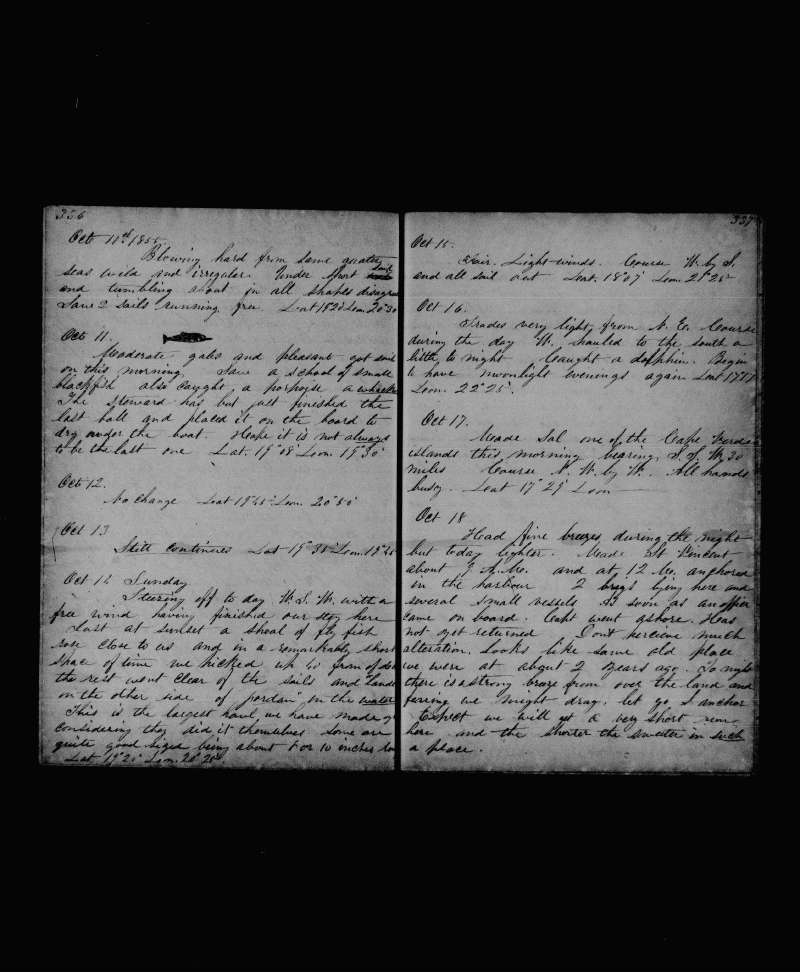 336
Oct 10th 1855
Blowing hard from same quarter
seas wild and irregular. Under short sail
and tumbling about in all shapes
Saw 2 sails running free. Lat 18 Lon. 20°30
Oct 11.
Moderate gales and pleasant got sail
on this morning. Saw a school of small
blackfish also caught a porpoise a
The steward has but just finished the
last ball and placed it on the board to
dry under the boat. Hope it is not always
to be the last one Lat. 19°08' Lon. 19°30'
Oct 12.
No change Lat 19°45' Lon. 20°50'
Oct 13
Still continues Lat 19°35' Lon.
Oct 14 Sunday
Steering off to day W. S. W. with a
free wind having finished our stay here
Last at sunset a shoal of fly fish
rose close to us and in a remarkably short
space of time we picked up from
the rest went clear of the sails and
on the other side of jordan in the water
This is the largest haul we have made
considering they did it themselves some are
quite good sized being about 8 or 10 inches
Lat 19°25' Lon. 20°25'
337
Oct 15.
Fair. Light winds. Course W. by S.
and all sail out Lat. 18°07' Lon. 21°25'
Oct 16.
Trades very light from N. E. Course
during the day W. hauled to the south a
little to night Caught a dolphin. Begin
to have moonlight evenings again Lat
Lon. 22°25'.
Oct 17.
Made Sal one of the Cape Verde
islands this morning bearing, S. S. W. 30
miles Course N. W. by W. All hands
busy. Lat 17°29' Lon
Oct 18
Had fine breezes during the night
but today lighter. Made St Vincent
about A. M. and at 12 M. anchored
in the harbour 2 brigs lying here and
several small vessels As soon as an officer
came on board. Capt went ashore. Has
not yet returned Don't perceive much
alteration. Looks like same old place
we were at about 2 years ago. To night
there is a strong breeze from over the land and
fearing we might drag, let go S. anchor
Expect we will get a very short run
here and the shorter the sweeter in such
a place.